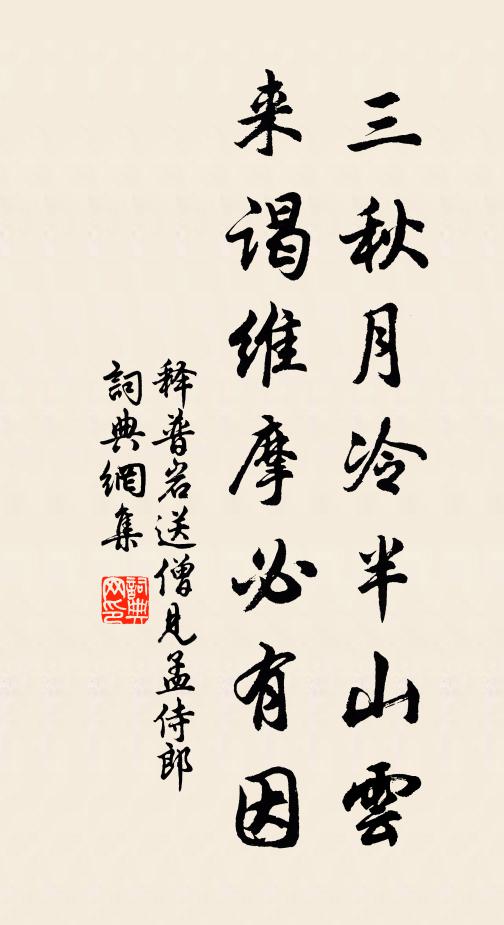 三秋月冷半山雲
来谒维摩必有因
释普岩送僧見孟侍郎
詞典網集
詞典网印